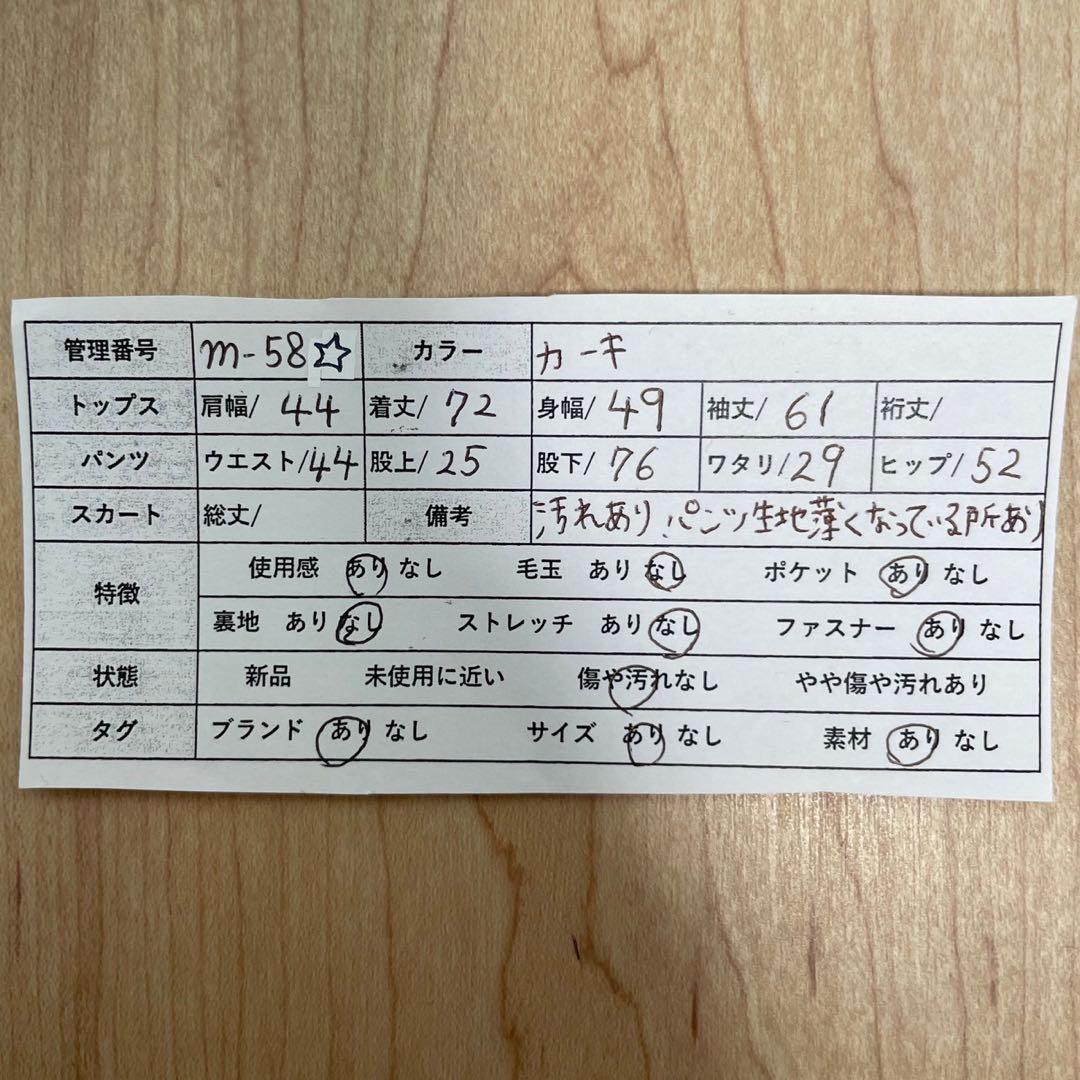 管理番号 m-58☆ カラー カーキ
トップス 肩幅/ 44 着丈/ 72 身幅/ 49 袖丈/ 61 裄丈/
パンツ ウエスト/44 股上/25 股下/76 ワタリ/29 ヒップ/52
スカート 総丈/ 備考 汚れあり、パンツ生地薄くなっている所あり
特徴 使用感 あり なし 毛玉 あり なし ポケット あり なし
裏地 あり なし ストレッチ あり なし ファスナー あり なし
状態 新品 未使用に近い 傷や汚れなし やや傷や汚れあり
タグ ブランド あり なし サイズ あり なし 素材 あり なし